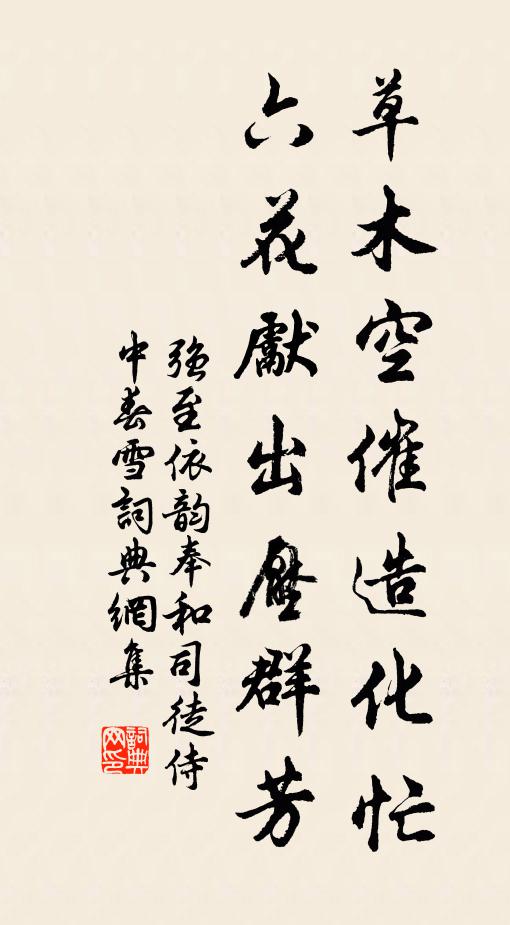 草木空催造化忙
六花獻出壓群芳
強至依韵奉和司徒侍
中春雪詞典網集
詞典
网印